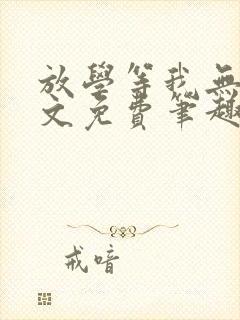 放學等我無
文免費筆趣
戒喑